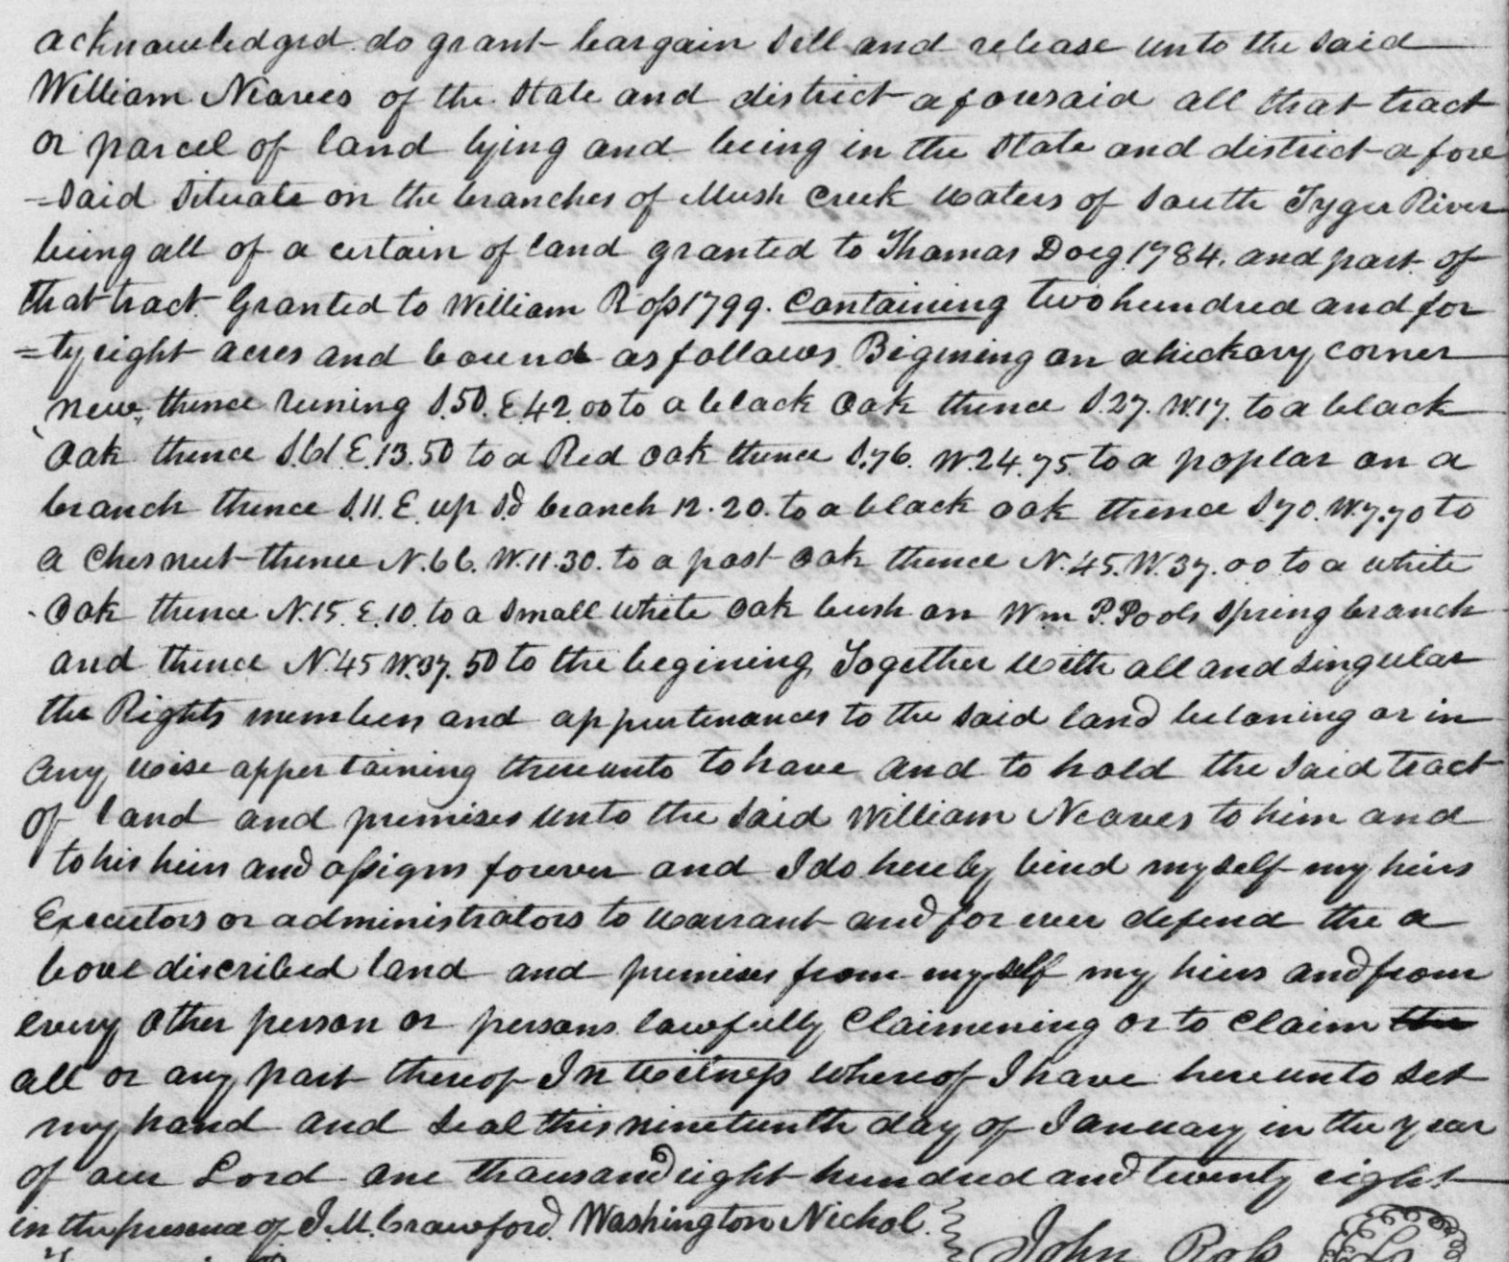 acknowledged do grant bargain Sell and release unto the Said
William Neaves of the State and district aforesaid all that tract
or parcel of land lying and being in the State and district afore
=Said Situate on the branches of Mush Creek waters of South Tyger River
being all of a certain of land granted to Thomas Doeg 1784. and part of
that tract Granted to William Ross 1799. Containing two hundred and for
=ty eight acres and bound as follows Begining on a hickory corner
new, thence runing S.50. E.42.00 to a black Oak thence S.27. W.17. to a black
Oak thence S.61.E.13.50 to a Red Oak thence S.76. W.24.75. to a poplar on a
branch thence S.11.E. up Sd branch 12.20. to a black oak thence S 70. W7.70 to
a Chesnut thence N.66. W.11.30. to a post Oak thence N.45. W.37.00 to a white
Oak thence N.15.E.10. to a Small white Oak bush on Wm P. Pools Spring branch
and thence N.45 W.37.50 to the begining, Together with all and Singular
the Rights members and appurtenances to the Said land beloning or in
any wise appertaining thereunto to have and to hold the Said tract
of land and premises unto the Said William Neaves to him and
to his heirs and assigns forever and I do hereby bind myself my heirs
Executors or administrators to warrant and for ever defend the a
bove discribed land and premises from myself my heirs and from
every Other person or persons lawfully Claimening or to Claim the
all or any part thereof In Witness whereof I have hereunto Set
my hand and Seal this nineteenth day of January in the year
of our Lord one thousand eight hundred and twenty eight
in the presence of J. M. Crawford. Washington Nichol.
John Ross LS